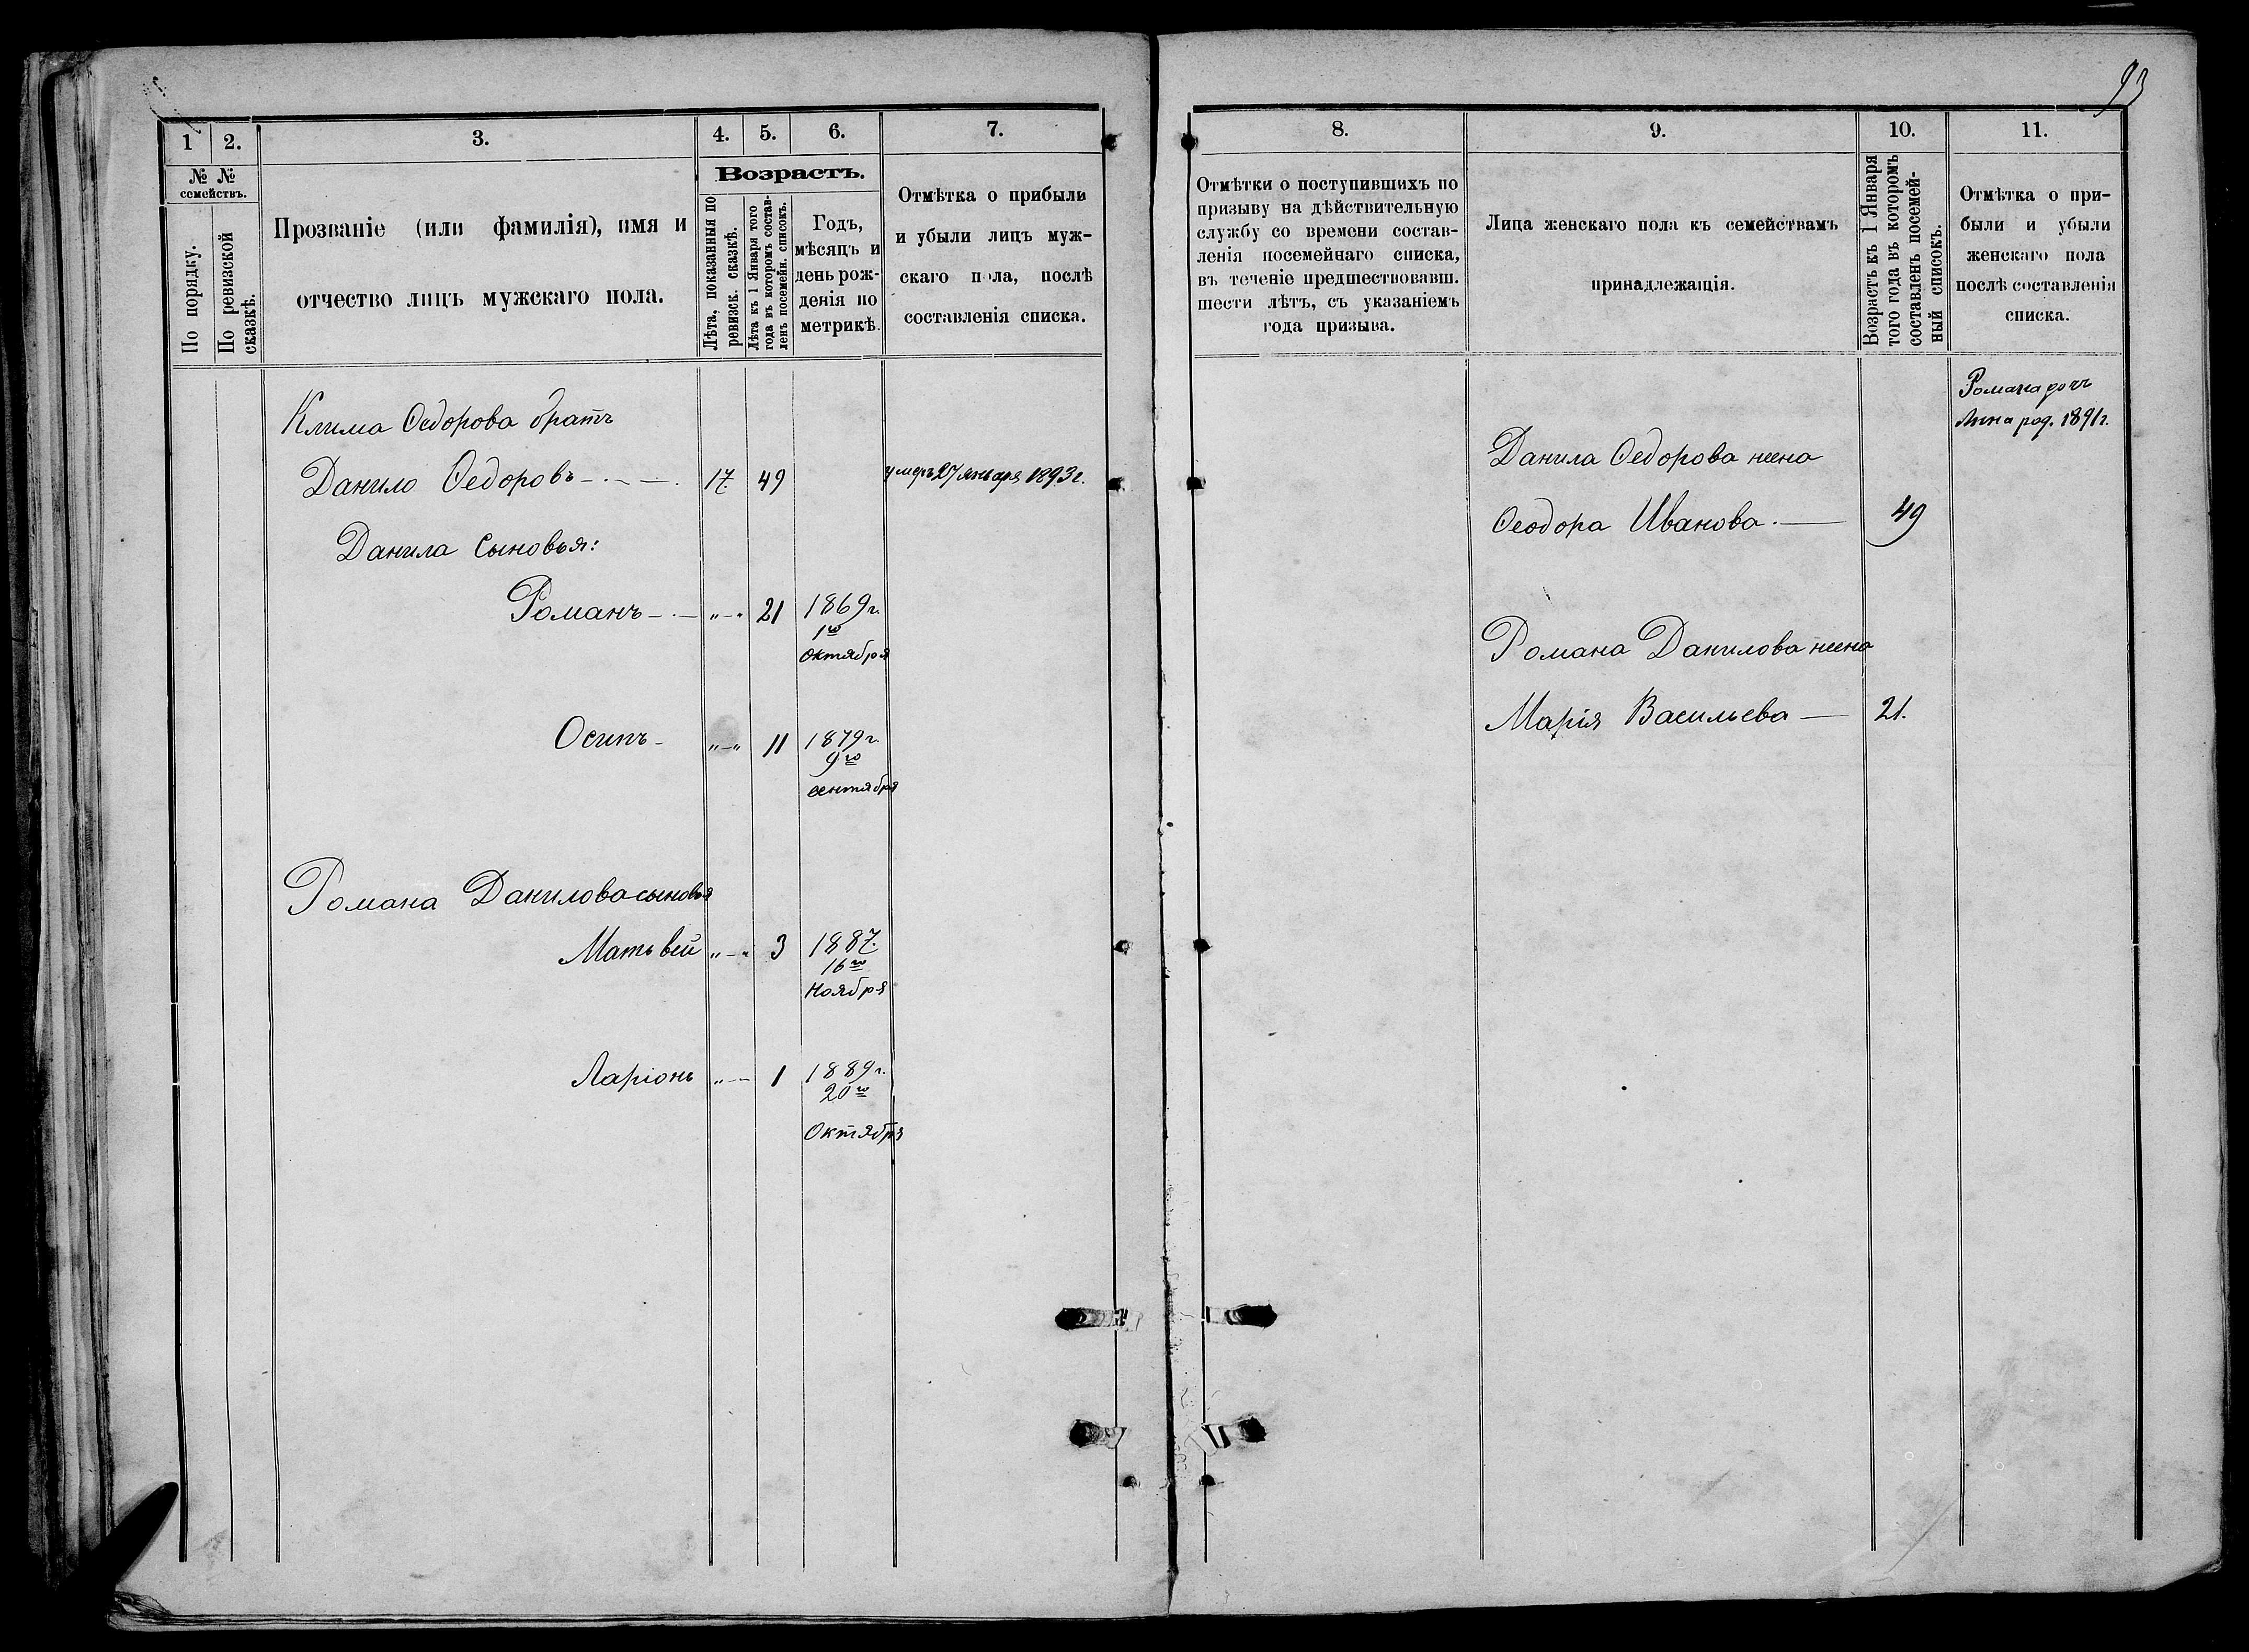 93
1
2.
3.
4.
5.
6.
7.
№ №
семействъ.
По порядку.
По ревизской
сказкѣ.
Прозваніе (или фамилія), имя и
отчество лицъ мужскаго пола.
Возрастъ.
Лѣта, показанныя по
ревизск. сказкѣ.
Лѣта къ 1 Января того
года въ которомъ состав-
ленъ посемейн. списокъ.
Годъ,
мѣсяцъ и
день рож-
денія по
метрикѣ.
Отмѣтка о прибыли
и убыли лицъ муж-
скаго пола, послѣ
составленія списка.
Клима Ѳедорова братъ
Данило Ѳедоровъ 17. 49 умеръ 27 января 1893 г.
Данила Сыновья:
Романъ „—„ 21 1869 г.
1го
октября
Осипъ „—„ 11 1879 г.
9го
сентября
Романа Данилова сыновья
Матьвей „—„ 3 1887.
16го
Ноября
Ларіонъ „— 1 1889 г.
20го
Октября
8.
9.
10.
11.
Отмѣтки о поступившихъ по
призыву на дѣйствительную
службу со времени состав-
ленія посемейнаго списка,
въ теченіе предшествовавш.
шести лѣтъ, съ указаніемъ
года призыва.
Лица женскаго пола къ семействамъ
принадлежащія.
Возрастъ къ 1 Января
того года въ которомъ
составленъ посемей-
ный списокъ.
Отмѣтка о при-
были и убыли
женскаго пола
послѣ составленія
списка.
Романа дочь
Анна род. 1891 г.
Данила Ѳедорова жена
Ѳеодора Иванова. — 49
Романа Данилова жена
Марія Васильева — 21.